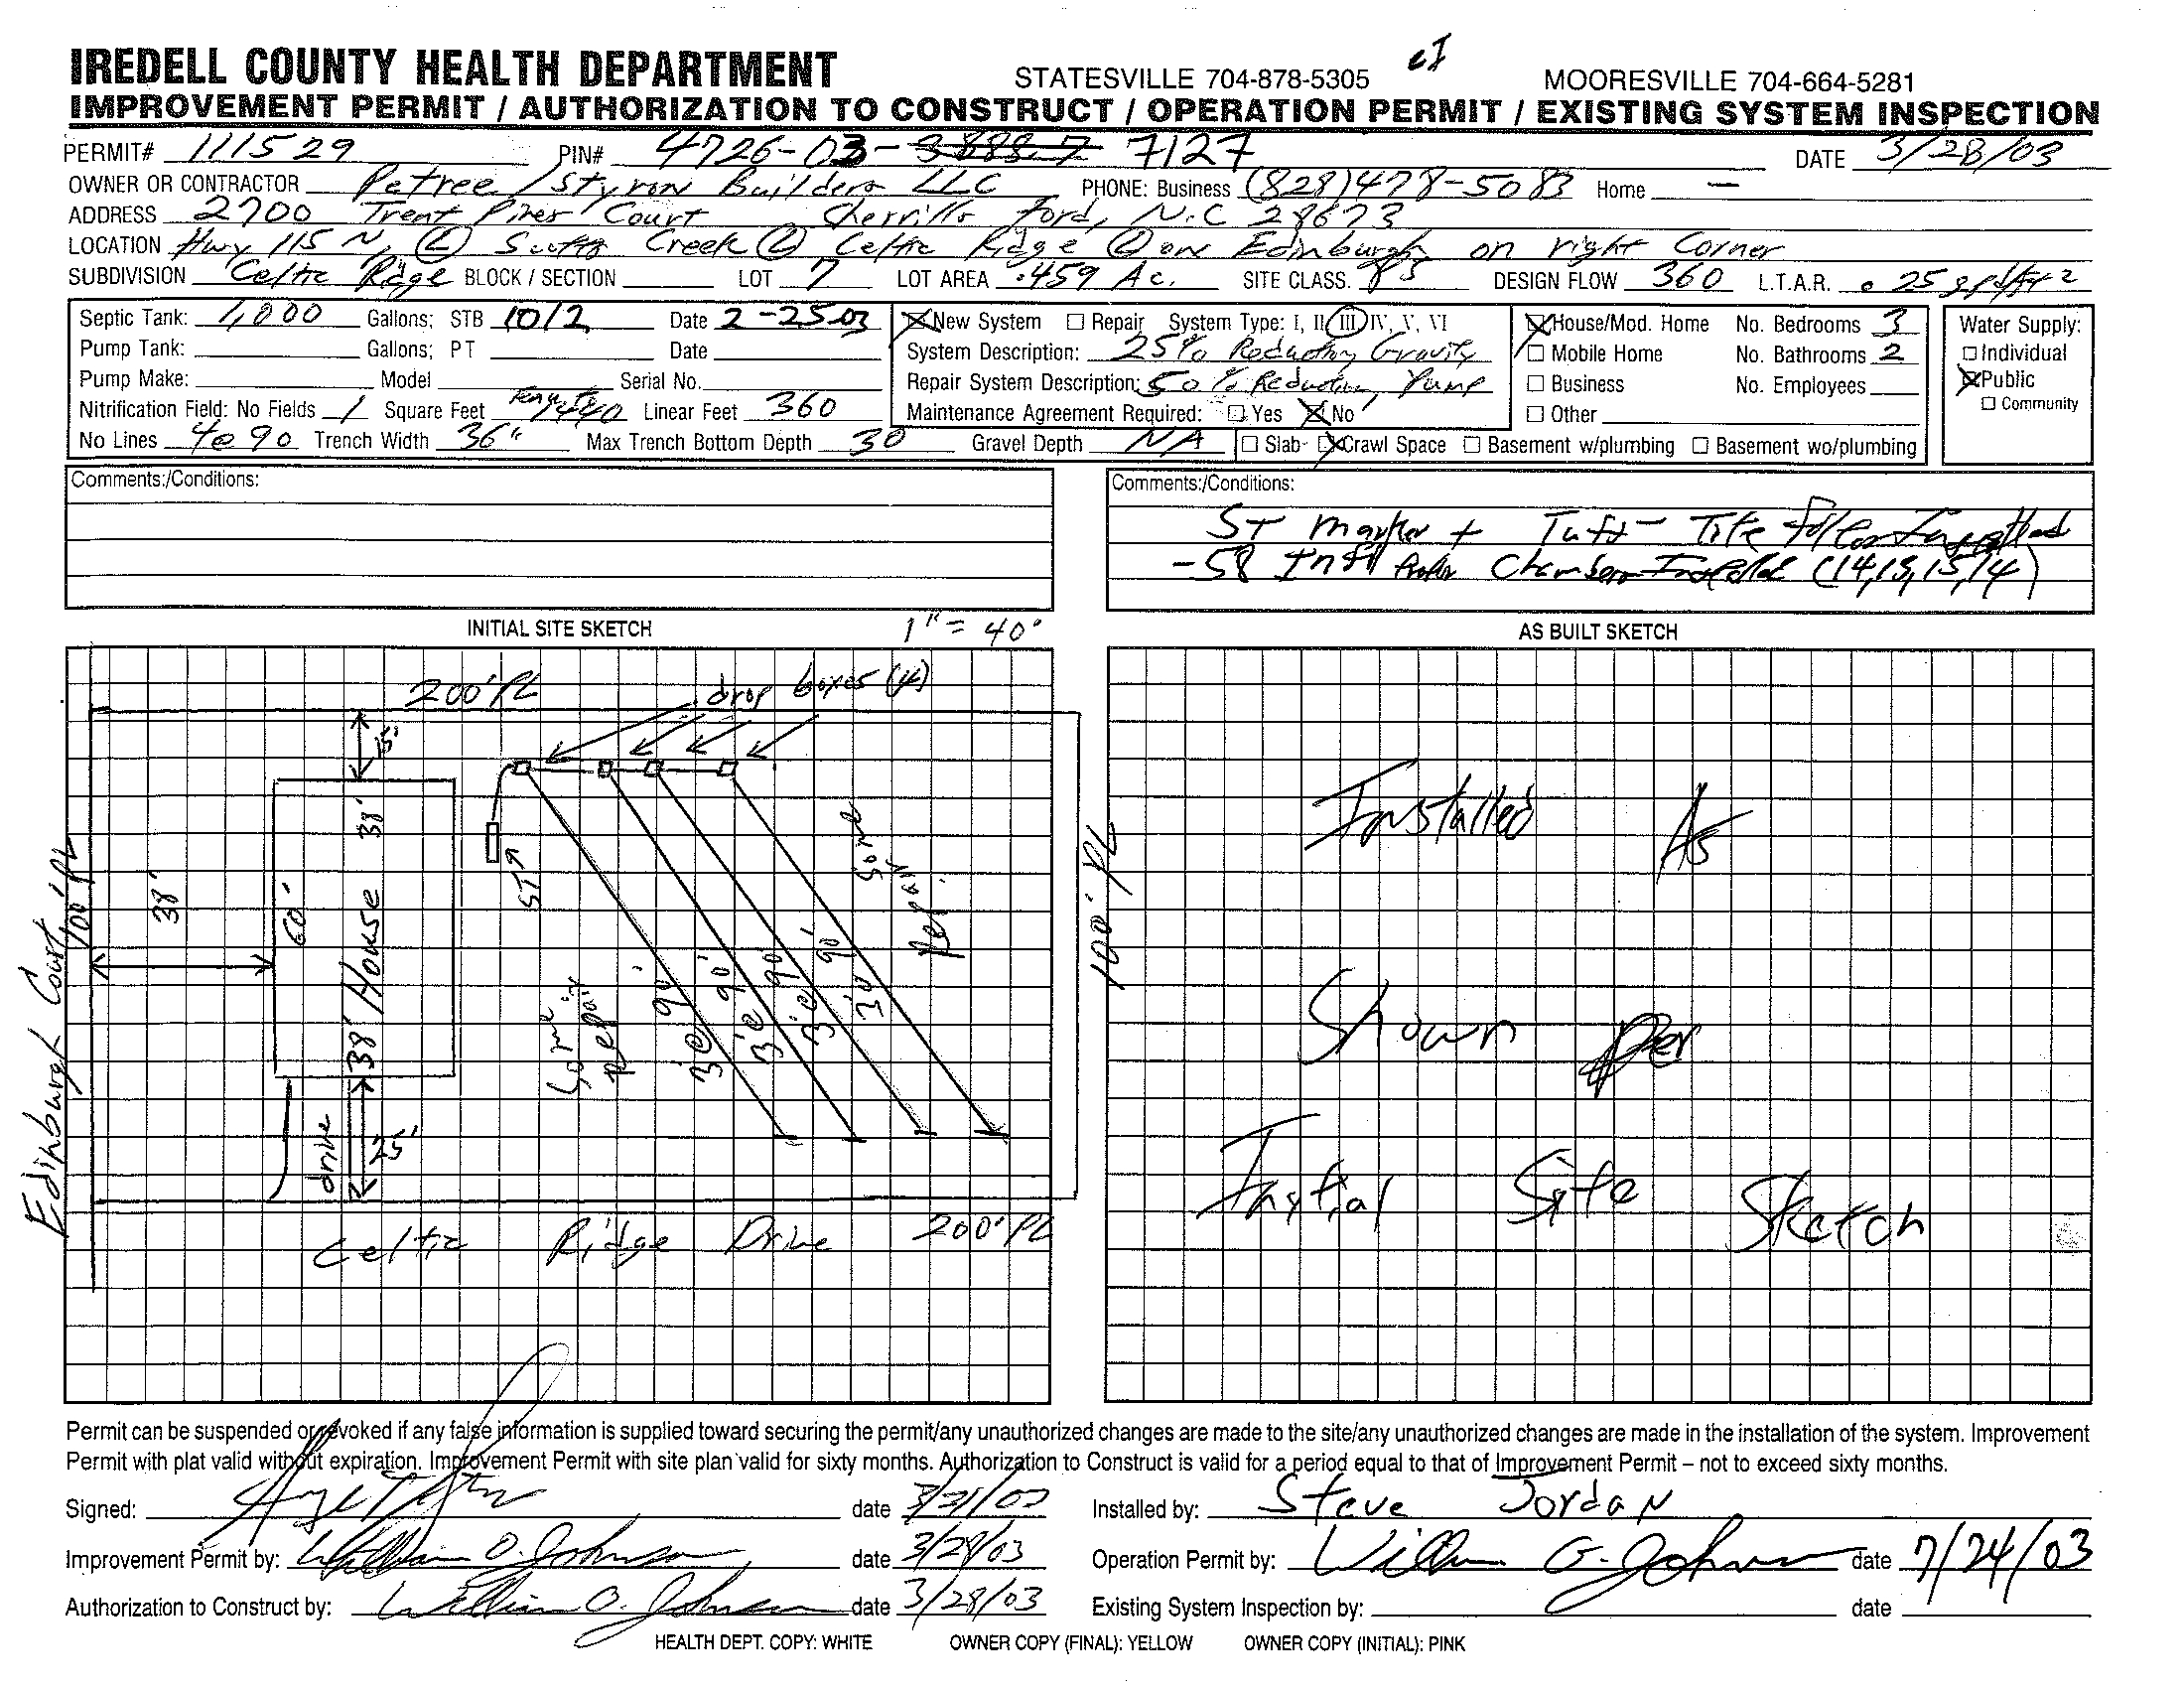 IREDELL COUNTY HEALTH DEPARTMENT STATESVILLE 704-878-5305 MOORESVILLE 704-664-5281
IMPROVEMENT PERMIT / AUTHORIZATION TO CONSTRUCT / OPERATION PERMIT / EXISTING SYSTEM INSPECTION
PERMIT# 111529 PIN# 4726-03- 7127 DATE 3/28/03
OWNER OR CONTRACTOR Petree / Styron Builders LLC PHONE: Business (828)478-5083 Home —
ADDRESS 2700 Trent Pines Court Sherrills Ford, N.C 28673
LOCATION Hwy 115 N, (L) Scotts Creek (L) Celtic Ridge (L) on Edinburgh on right Corner
SUBDIVISION Celtic Ridge BLOCK / SECTION LOT 7 LOT AREA .459 Ac. SITE CLASS. PS DESIGN FLOW 360 L.T.A.R. .25 gpd/ft2
Septic Tank: 1,000 Gallons; STB 1012 Date 2-25-03
Pump Tank: Gallons; PT Date
Pump Make: Model Serial No.
Nitrification Field: No Fields 1 Square Feet 1440 Linear Feet 360
No Lines 4@90 Trench Width 36" Max Trench Bottom Depth 30 Gravel Depth NA
New System Repair System Type: I, II, III, IV, V, VI
System Description: 25% Reduction Gravity
Repair System Description: 50% Reduction, Pump
Maintenance Agreement Required: Yes No
House/Mod. Home No. Bedrooms 3
Mobile Home No. Bathrooms 2
Business No. Employees
Other
Slab Crawl Space Basement w/plumbing Basement wo/plumbing
Water Supply:
Individual
Public
Community
Comments:/Conditions:
Comments:/Conditions:
ST marker + Tuft-Tite filter Installed
-58 Infiltrator Chambers Installed (14,15,15,14)
INITIAL SITE SKETCH 1" = 40'
200' PL
drop boxes (4)
15'
38'
60'
38' House
38'
ST
Some repair
3' @ 90'
3' @ 90'
3' @ 90'
3' @ 90'
Some Repair
100' PL
Edinburgh Court
100' PL
drive
25'
Celtic Ridge Drive 200' PL
AS BUILT SKETCH
Installed As
Shown Per
Initial Site Sketch
Permit can be suspended or revoked if any false information is supplied toward securing the permit/any unauthorized changes are made to the site/any unauthorized changes are made in the installation of the system. Improvement
Permit with plat valid without expiration. Improvement Permit with site plan valid for sixty months. Authorization to Construct is valid for a period equal to that of Improvement Permit – not to exceed sixty months.
Signed: date 3/31/03
Installed by: Steve Jordan
Improvement Permit by: William O. Johnson date 3/28/03
Operation Permit by: William G. Johnson date 7/24/03
Authorization to Construct by: William O. Johnson date 3/28/03
Existing System Inspection by: date
HEALTH DEPT. COPY: WHITE OWNER COPY (FINAL): YELLOW OWNER COPY (INITIAL): PINK